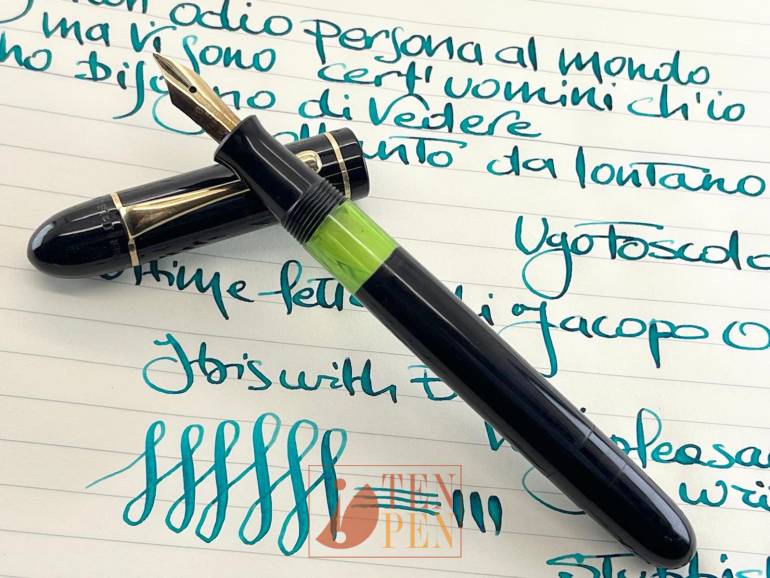 non odio persona al mondo
ma vi sono certi uomini ch'io
ho bisogno di vedere
da lontano
Ugo Foscolo
Ultime lette di Jacopo O
Ibis with
pleasa
wri
Stubbish
TEN
PEN